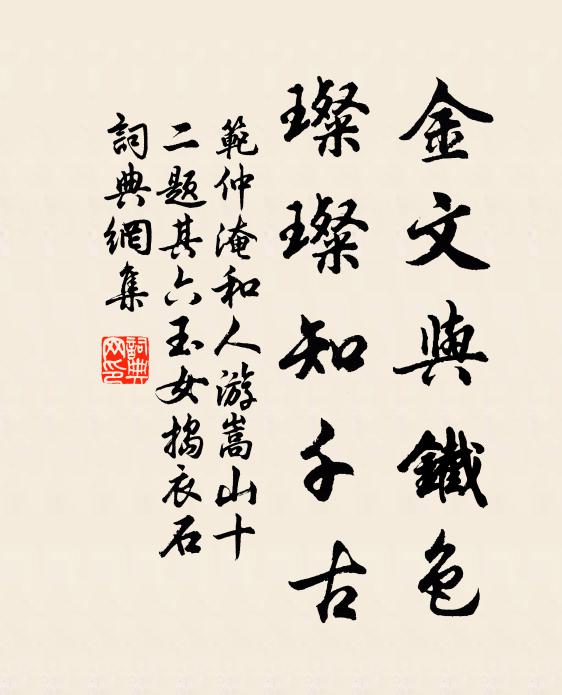 金文與鐵色
璨璨知千古
範仲淹和人游嵩山十
二题其六玉女搗衣石
詞典網集
詞典
网印